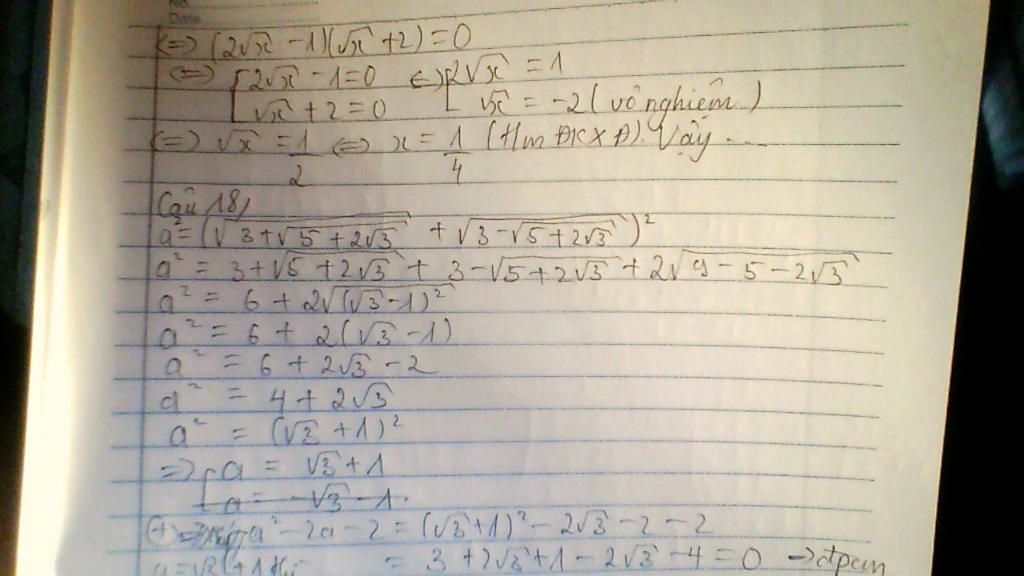 No.
Date
<=> (2√x - 1)(√x + 2) = 0
<=> [2√x - 1 = 0 <=> [2√x = 1
[√x + 2 = 0 [√x = -2 (vô nghiệm)
<=> √x = 1/2 <=> x = 1/4 (tm ĐKXĐ). Vậy ...
Câu 18,
a² = (√(3 + √(5 + 2√3)) + √(3 - √(5 + 2√3)))²
a² = 3 + √(5 + 2√3) + 3 - √(5 + 2√3) + 2√(9 - 5 - 2√3)
a² = 6 + 2√((√3 - 1)²)
a² = 6 + 2(√3 - 1)
a² = 6 + 2√3 - 2
a² = 4 + 2√3
a² = (√3 + 1)²
=> [a = √3 + 1
[a = -√3 - 1.
(+) a² - 2a - 2 = (√3 + 1)² - 2√3 - 2 - 2
a = √3 + 1 = 3 + 2√3 + 1 - 2√3 - 4 = 0 → đpcm